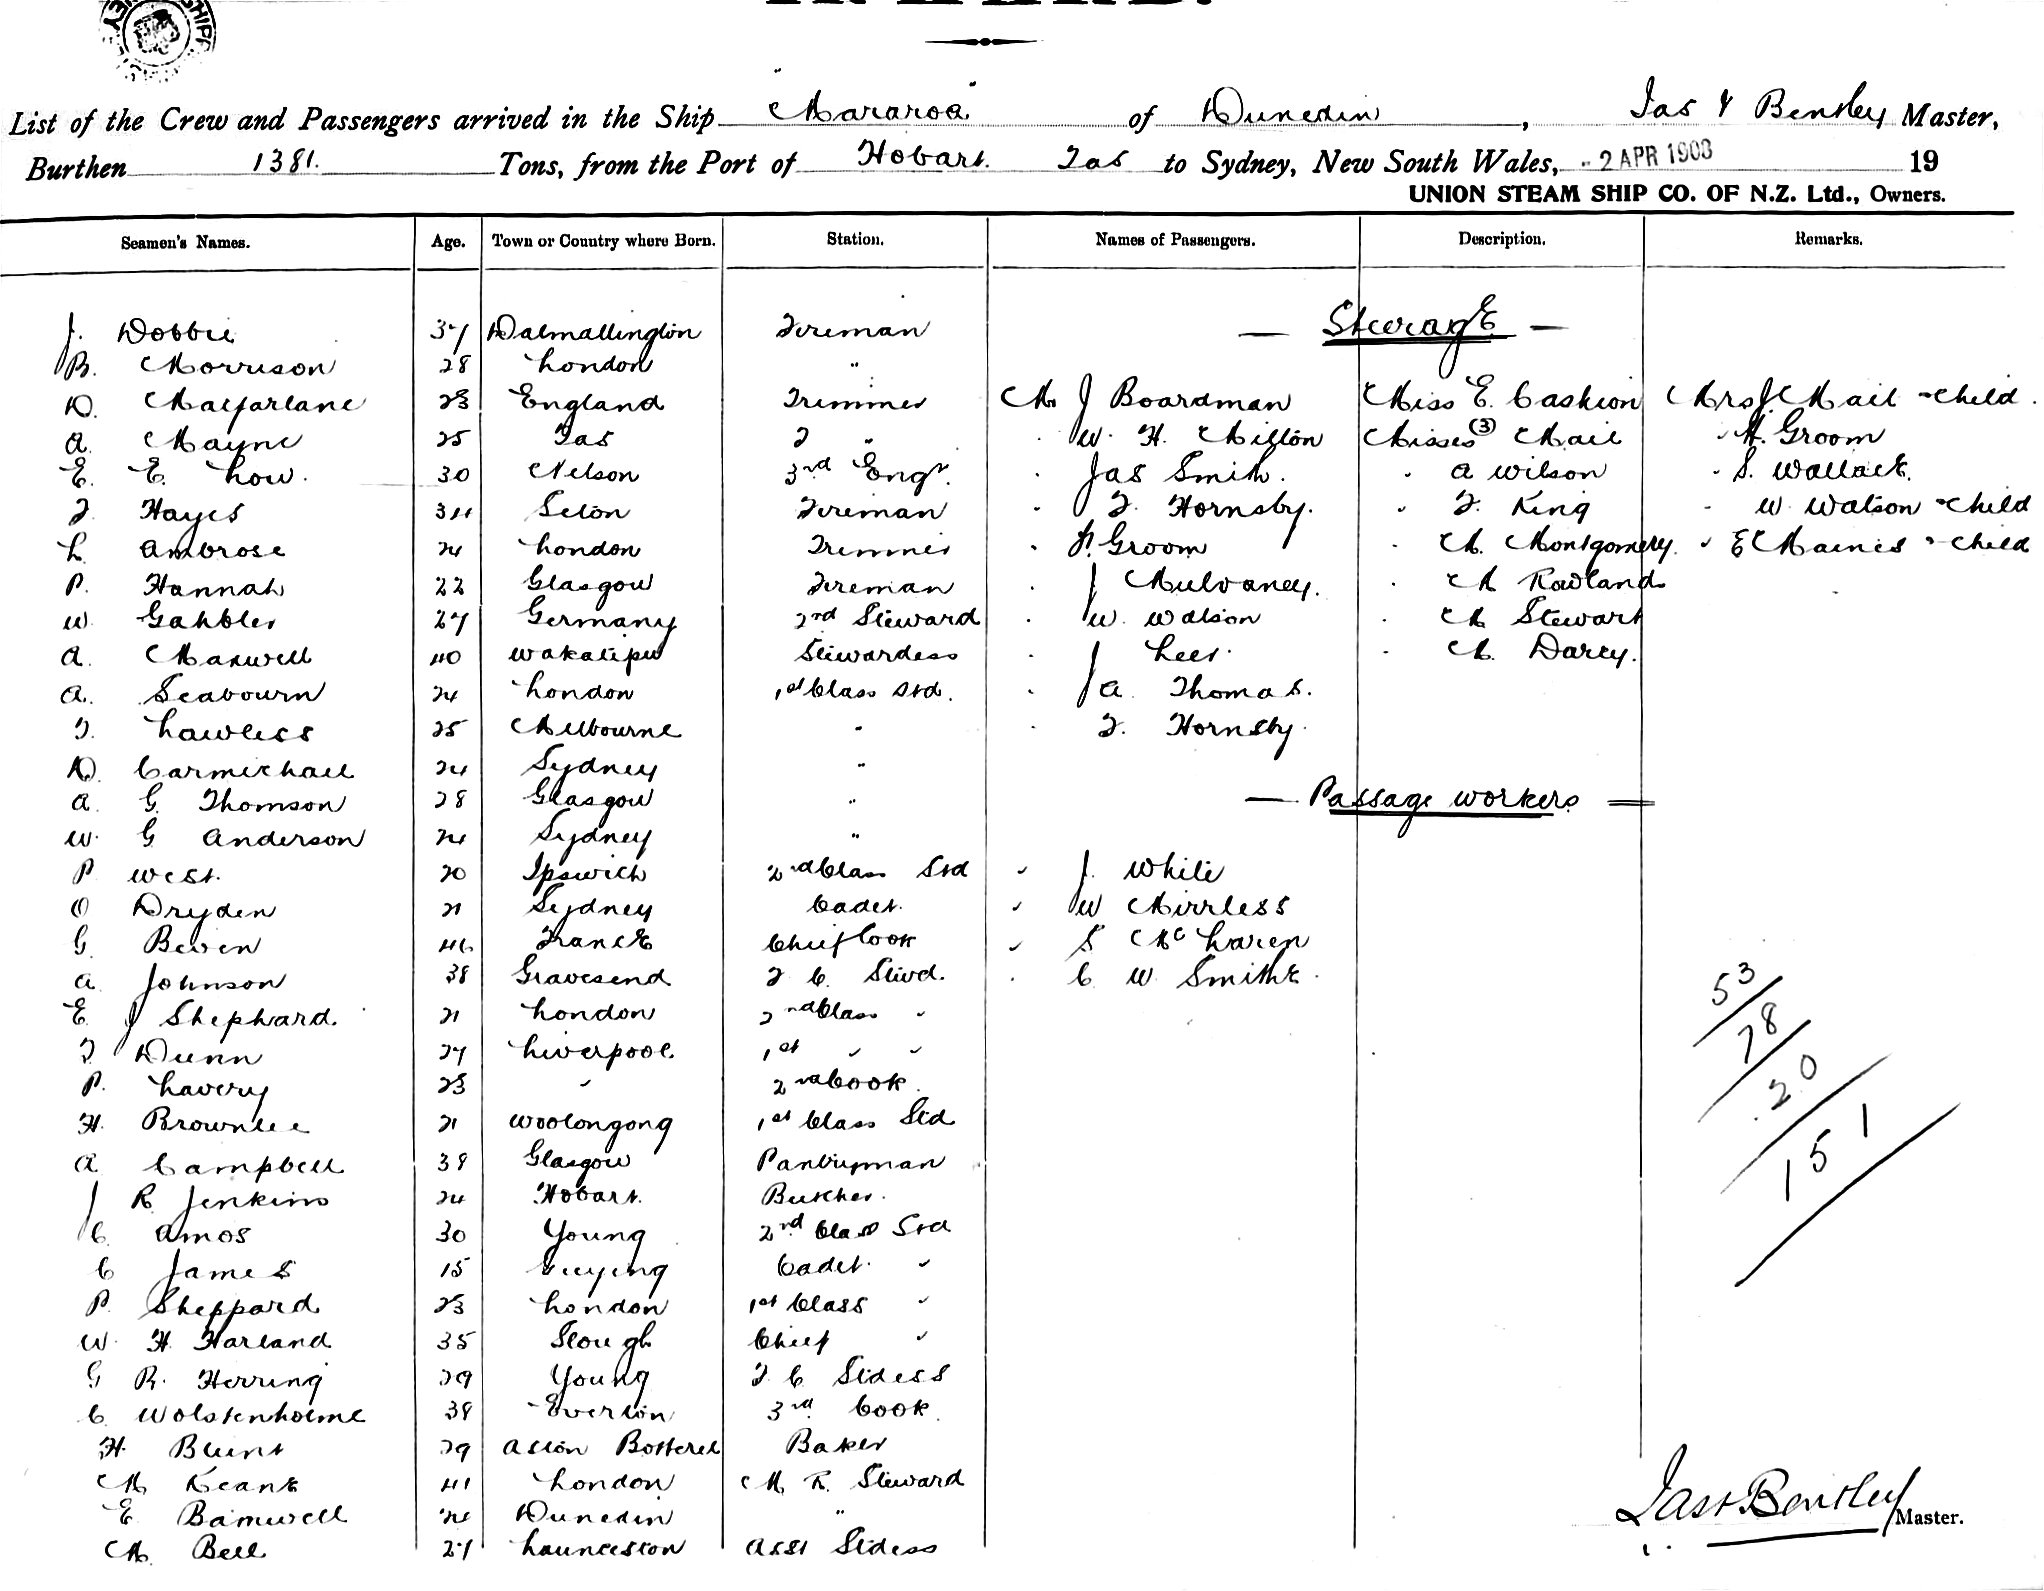 List of the Crew and Passengers arrived in the Ship Mararoa of Dunedin, Jas Y Bentley Master,
Burthen 1381. Tons, from the Port of Hobart. Tas to Sydney, New South Wales, 2 APR 1903 19
UNION STEAM SHIP CO. OF N.Z. Ltd., Owners.
Seamen's Names. Age. Town or Country where Born. Station. Names of Passengers. Description. Remarks.
— Steerage —
J. Dobbie 37 Dalmallington Fireman
R. Morrison 28 London "
D. Macfarlane 23 England Trimmer M J Boardman Miss E. Cashion Mrs J. Mail - Child
A. Mayne 25 Tas T " W. H. Milton Misses (3) Mail " H. Groom
E. E. Low. 30 Nelson 3rd Engr. Jas Smith. " A Wilson " S. Wallace
T Hayes 34 Seton Fireman T. Hornsby. " T. King " W Watson - Child
L Ambrose 24 London Trimmer H. Groom " M. Montgomery. " E Maines - Child
P. Hannah 22 Glasgow Fireman J Mulvaney. " M Rowland
W. Gahbler 27 Germany 2nd Steward W. Watson " M Stewart
A. Maxwell 40 Wakatipu Stewardess J Lees. " M. Darcy.
A. Seabourn 24 London 1st Class Std. J A Thomas.
T. Lawless 25 Melbourne " T. Hornsby.
D. Carmichael 24 Sydney "
A. G. Thomson 28 Glasgow "
— Passage Workers —
W. G Anderson 24 Sydney "
P West. 20 Ipswich 2nd Class Std J. White
O Dryden 21 Sydney Cadet. W Mirrless
G. Beven 46 France Chief Cook S McLaren
A. Johnson 38 Gravesend 2 C. Stwd. C W. Smithe
E J Shephard. 21 London 2nd Class "
T Dunn 27 Liverpool. 1st " "
P. Lavery 23 " 2nd Cook.
H. Brownlee 21 Woolongong 1st Class Std
A Campbell 38 Glasgow Pantryman
J R Jenkins 24 Hobart. Butcher.
C. Amos 30 Young 2nd Class Std
C James 15 Cadet. "
P. Sheppard 23 London 1st Class "
W. H. Harland 35 Slough Chief "
G R. Herring 29 Young T. C Stdess
C. Wolstenholme 38 Everton 3rd Cook.
H. Blunt 29 Aston Botterel Baker
M Keane 41 London M. R. Steward
E. Bamwell 24 Dunedin "
M. Bell 27 Launceston Asst Stdess
53
78
20
151
Jas Y Bentley Master.